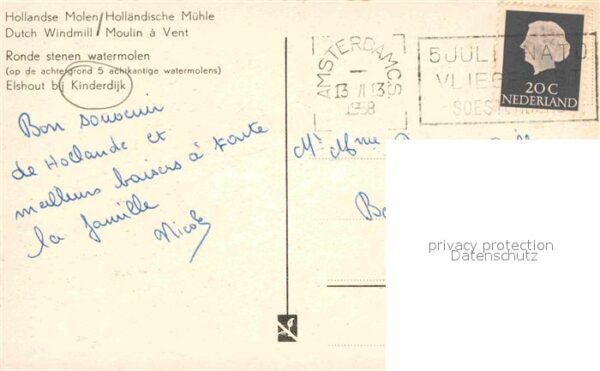 Hollandse Molen/Holländische Mühle
Dutch Windmill/Moulin à Vent
Ronde stenen watermolen
(op de achtergrond 5 achtkantige watermolens)
Elshout bij Kinderdijk
Bon souvenir
de Hollande et
meilleurs baisers à toute
la famille
Nicole
AMSTERDAM CS
1958
5 JULI NATO
VLIEGF
SOEST
20 C
NEDERLAND
Mr Mme
privacy protection
Datenschutz